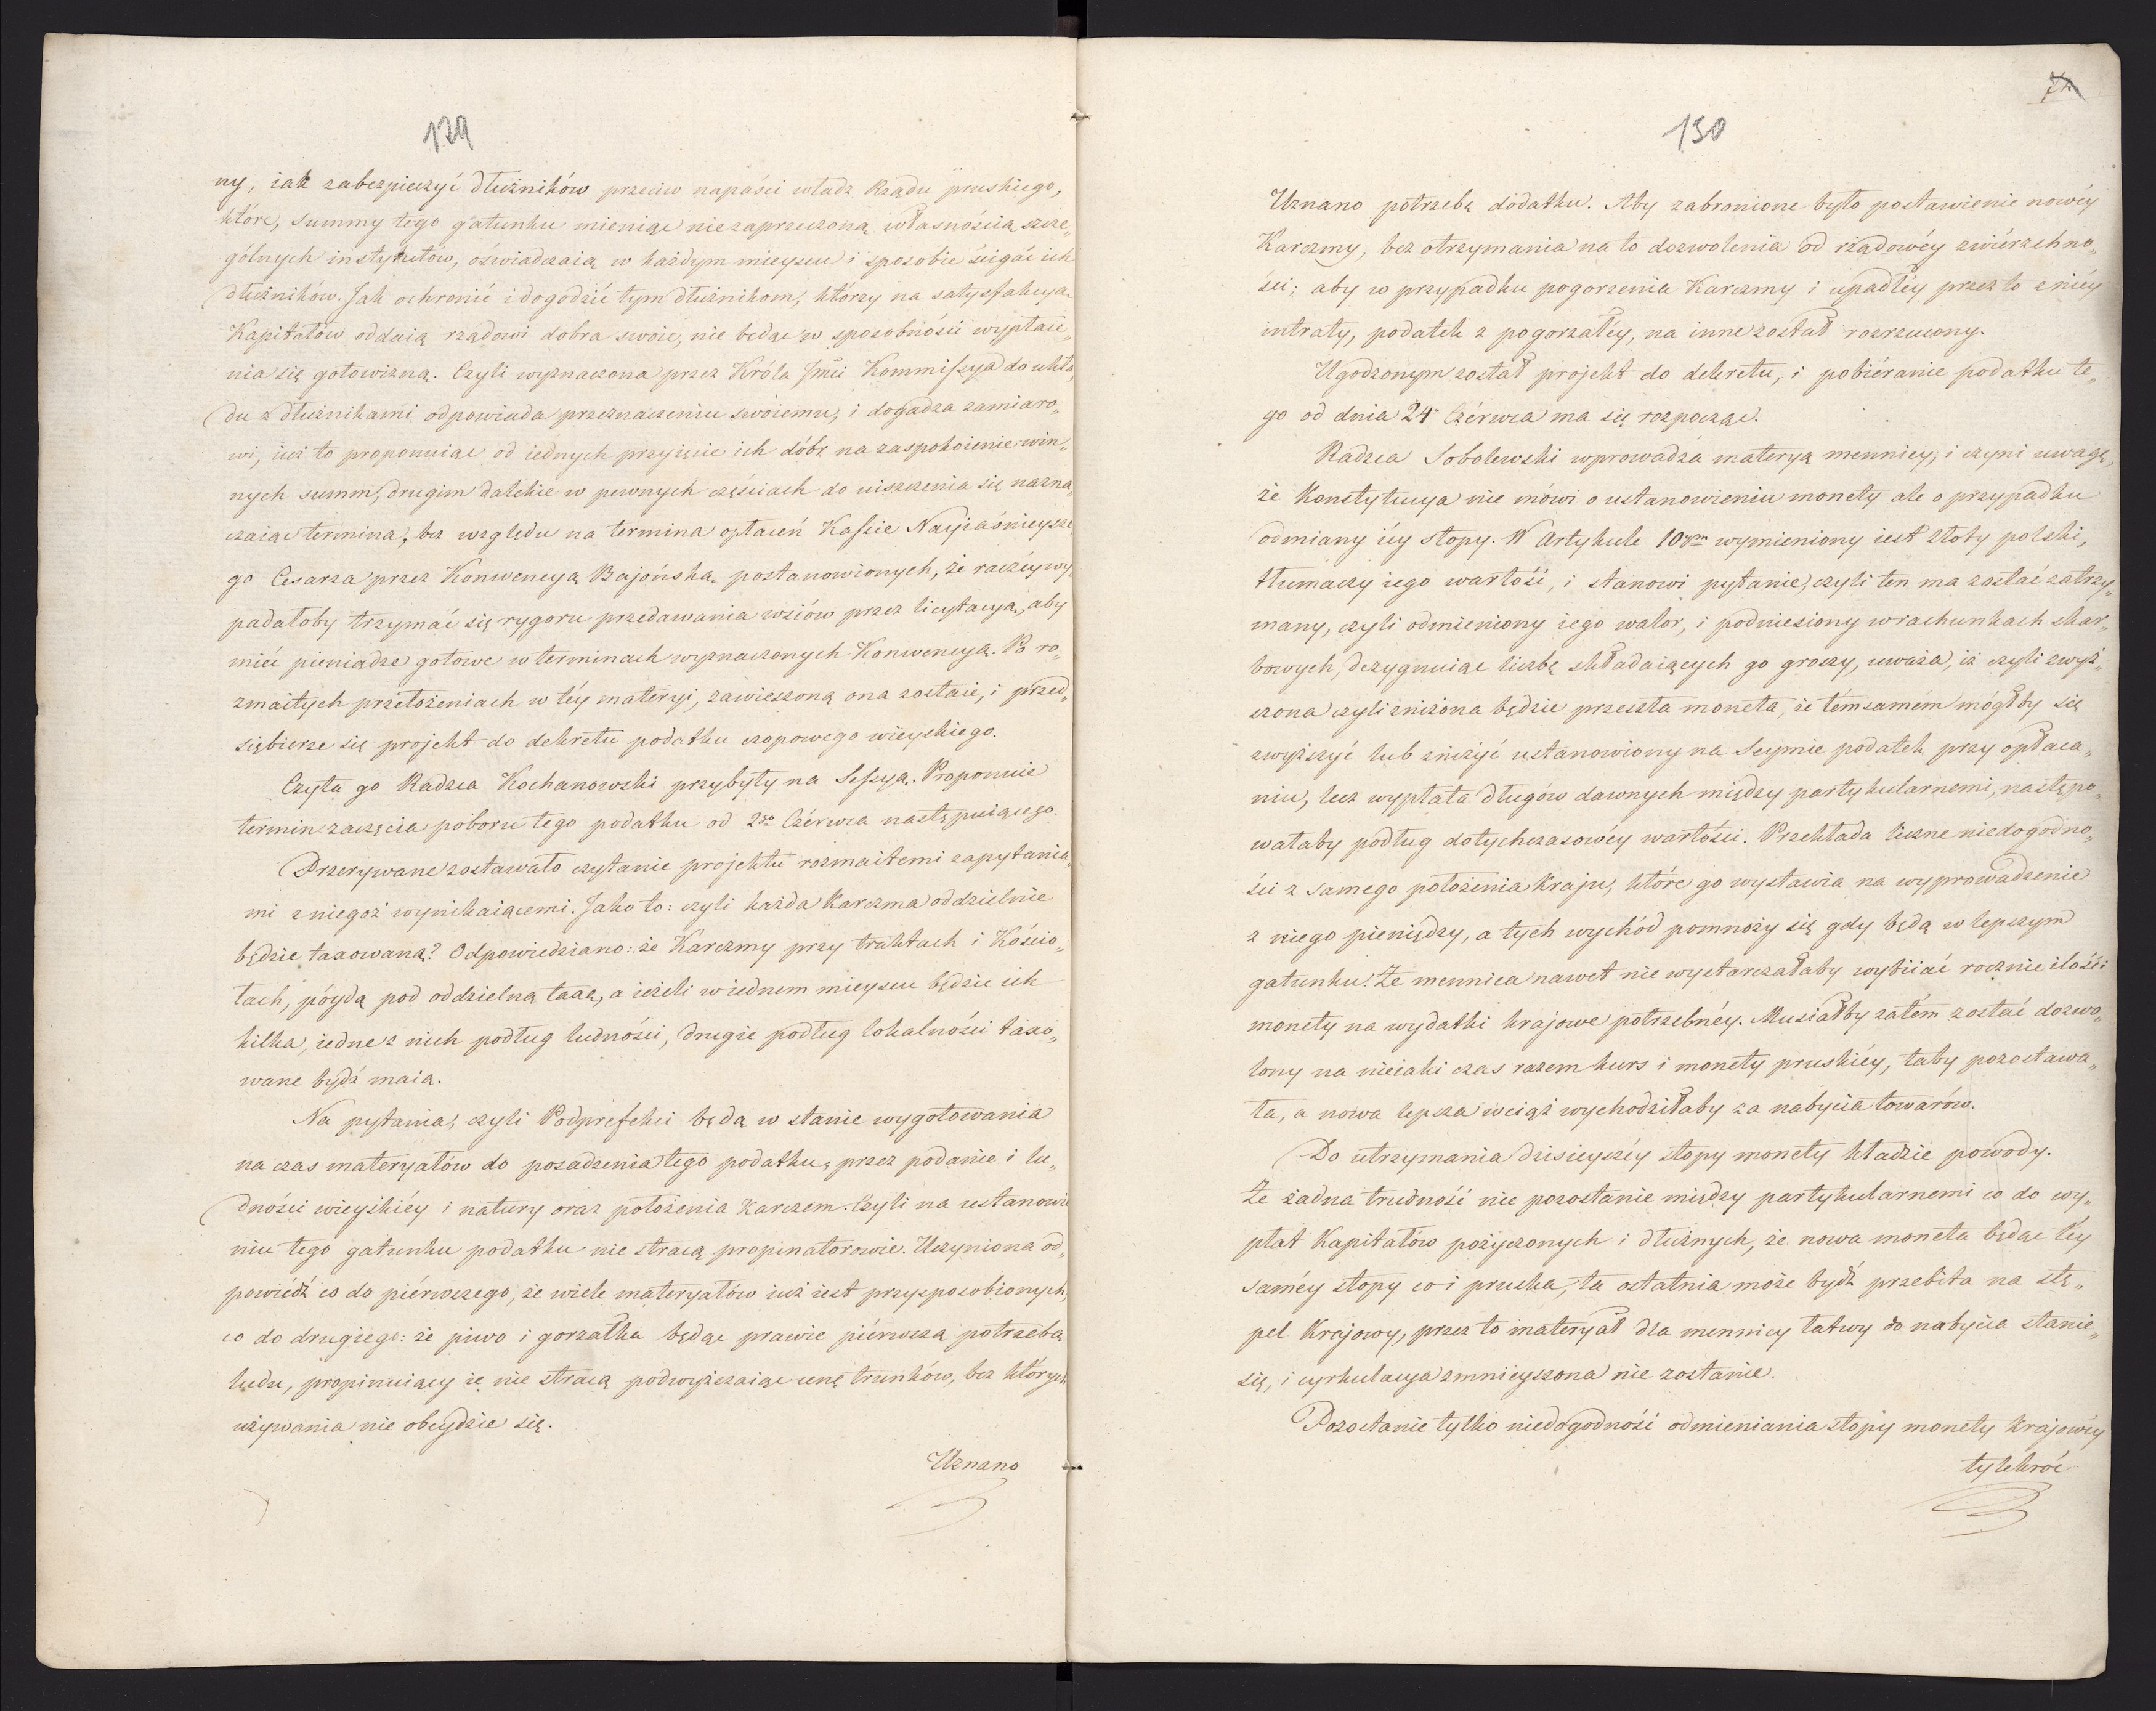 129
ny, iak zabezpieczyć dłużników przeciw napaści władz Rządu pruskiego,
które, summy tego gatunku mieniąc niezaprzeczoną własnością szcze„
gólnych instytutów, oświadczaią w każdym mieyscu i sposobie ścigać ich
dłużników. Jak ochronić i dogodzić tym dłużnikom, którzy na satysfakcyą
Kapitałów oddaią rządowi dobra swoie, nie będąc w sposobności wypłace„
nia się gotowizną. Czyli wyznaczona przez Króla Jmći Kommissya do ukła„
du z dłużnikami odpowiada przeznaczeniu swoiemu, i dogadza zamiaro„
wi, iuż to proponuiąc od iednych przyięcie ich dóbr na zaspokoienie win„
nych summ, drugim dalekie w pewnych częściach do uiszczenia się nazna„
czaiąc termina, bez względu na termina opłaceń Kassie Nayiaśnieysze„
go Cesarza przez Konwencyą Bajońską postanowionych, że raczéy wy„
padałoby trzymać się rygoru przedawania wsiów przez licytacyą, aby
mieć pieniądze gotowe w terminach wyznaczonych Konwencyą. Po ro„
zmaitych przełożeniach w téy materyi, zawieszoną ona zostaie, i przed„
siębierze się projekt do dekretu podatku czopowego wieyskiego.
Czyta go Radzca Kochanowski przybyły na Sessyą. Proponuie
termin zaczęcia poboru tego podatku od 2go Czérwca następuiącego.
Przerywane zostawało czytanie projektu rozmaitemi zapytania„
mi z niegoż wynikaiącemi. Jako to: czyli każda Karczma oddzielnie
będzie taxowaną? Odpowiedziano: że Karczmy przy traktach i Kościo„
łach, póydą pod oddzielną taxę, a ieżeli w iednem mieyscu będzie ich
kilka, iedne z nich podług ludności, drugie podług lokalności taxo„
wane bydź maią.
Na pytania, czyli Podprefekci będą w stanie wygotowania
na czas materyałów do posadzenia tego podatku, przez podanie i lu„
dności wieyskiéy i natury oraz położenia Karczem. Czyli na ustanowie
niu tego gatunku podatku nie stracą propinatorowie. Uczyniona od„
powiédź co do piérwszego, że wiele materyałów iuż iest przysposobionych,
co do drugiego: że piwo i gorzałka będąc prawie piérwszą potrzebą
ludu, propinuiący ie nie stracą podwyższaiąc cenę trunków, bez których
używania nie obeydzie się.
Uznano
130
Uznano potrzebą dodatku. Aby zabronione było postawienie nowéy
Karczmy, bez otrzymania na to dozwolenia od rządowéy zwiérzchno„
ści; aby w przypadku pogorzenia Karczmy i upadłéy przez to z niéy
intraty, podatek z pogorzałéy, na inne został rozrzucony.
Ugodzonym został projekt do dekretu, i pobiéranie podatku te„
go od dnia 24º Czérwca ma się rozpocząć.
Radzca Sobolewski wprowadza materyą mennicy, i czyni uwagę,
że Konstytucya nie mówi o ustanowieniu monety ale o przypadku
odmiany iéy stopy. W Artykule 10tym wymieniony iest Złoty polski,
tłumaczy iego wartość, i stanowi pytanie, czyli ten ma zostać zatrzy„
many, czyli odmieniony iego walor, i podniesiony w rachunkach skar„
bowych, dezygnuiąc liczbę składaiących go groszy, uważa, iż czyli zwyż„
szona czyli zniżona będzie przeszła moneta, że témsamém mógłby się
zwyższyć lub zniżyć ustanowiony na Seymie podatek przy opłaca„
niu, lecz wypłata długów dawnych między partykularnemi, następo„
wałaby podług dotychczasowéy wartości. Przekłada liczne niedogodno„
ści z samego położenia Kraju, które go wystawia na wyprowadzenie
z niego pieniędzy, a tych wychód pomnoży się gdy będą w lepszym
gatunku. Że mennica nawet nie wystarczałaby wybiiać rocznie ilości
monety na wydatki krajowe potrzebnéy. Musiałby zatém zostać dozwo„
lony na nieiaki czas razem kurs i monety pruskiéy, taby pozostawa„
ła, a nowa lepsza wciąż wychodziłaby za nabycia towarów.
Do utrzymania dzisieyszéy stopy monety kładzie powody.
Że żadna trudność nie pozostanie między partykularnemi co do wy„
płat Kapitałów pożyczonych i dłużnych, że nowa moneta będąc téy
saméy stopy co i pruska, ta ostatnia może bydź przebita na stę„
pel Krajowy, przez to materyał dla mennicy łatwy do nabycia stanie„
się, i cyrkulacya zmnieyszona nie zostanie.
Pozostanie tylko niedogodność odmieniania stopy monety Krajowéy
tylekroć